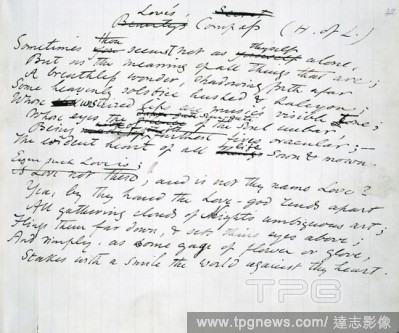 Love's
Beauty's Compass (H. of L.)
Sometimes thou seem'st not as thyself alone,
But as the meaning of all things that are;
A breathless wonder, shadowing forth afar
Some heavenly solstice hushed & halcyon;
Whose unstirred lips are music's visible tone;
Whose eyes the soul unbar,
Being of its furthest fires oracular;—
The evident heart of all life sown & mown.
Even such Love is;
Is Love not there, and is not thy name Love?
Yea, by thy hand the Love-god rends apart
All gathering clouds of Night's ambiguous art;
Flings them far down, & sets thine eyes above;
And simply, as some gage of flower or glove,
Stakes with a smile the world against thy heart.
TPG
www.tpgnews.com / 達志影像